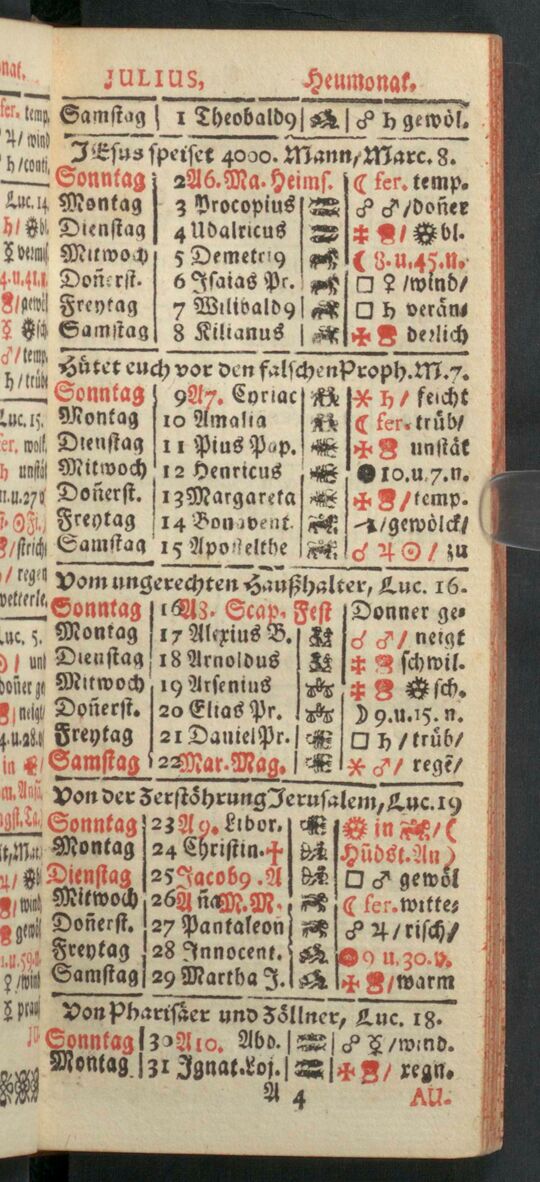 JULIUS, Heumonat.
Samstag 1 Theobald9 ☍ ♄ gewöl.
JEsus speiset 4000. Mann, Marc. 8.
Sonntag 2 A6. Ma. Heims. ☾ fer. temp.
Montag 3 Procopius ☍ ♂/doñer
Dienstag 4 Udalricus bl.
Mitwoch 5 Demetri9 ☾ 8.u.45.n.
Doñerst. 6 Isaias Pr. □ ♀/wind/
Freytag 7 Wilibald9 □ ♄ verän⸗
Samstag 8 Kilianus derlich
Hütet euch vor den falschen Proph. M. 7.
Sonntag 9 A7. Cyriac ⚹ ♄/ feicht
Montag 10 Amalia ☾ fer. trüb/
Dienstag 11 Pius Pap. unstät
Mitwoch 12 Henricus ● 10.u.7.n.
Doñerst. 13 Margareta /temp.
Freytag 14 Bonavent. /gewölck/
Samstag 15 Apostelthe ☌ ♃ ☉/ zu
Vom ungerechten Haußhalter, Luc. 16.
Sonntag 16 A8. Scap. Fest Donner ge⸗
Montag 17 Alexius B. ☌ ♂/ neigt
Dienstag 18 Arnoldus schwil.
Mitwoch 19 Arsenius sch.
Doñerst. 20 Elias Pr. ☽ 9.u.15.n.
Freytag 21 Daniel Pr. □ ♄/trüb/
Samstag 22 Mar. Mag. ⚹ ♂/ regẽ/
Von der Zerstöhrung Jerusalem, Luc. 19
Sonntag 23 A9. Libor. in /☾
Montag 24 Christin. ✝ Hüdst. An)
Dienstag 25 Jacob9. A □ ♂ gewöl
Mitwoch 26 Aña M. M. ☾ fer. witte⸗
Doñerst. 27 Pantaleon ☍ ♃/risch/
Freytag 28 Innocent. 9 u.30.v.
Samstag 29 Martha J. /warm
Von Pharisäer und Zöllner, Luc. 18.
Sonntag 30 A10. Abd. ☍ ☿/wind.
Montag 31 Ignat. Loj. / regn.
A 4 AU.